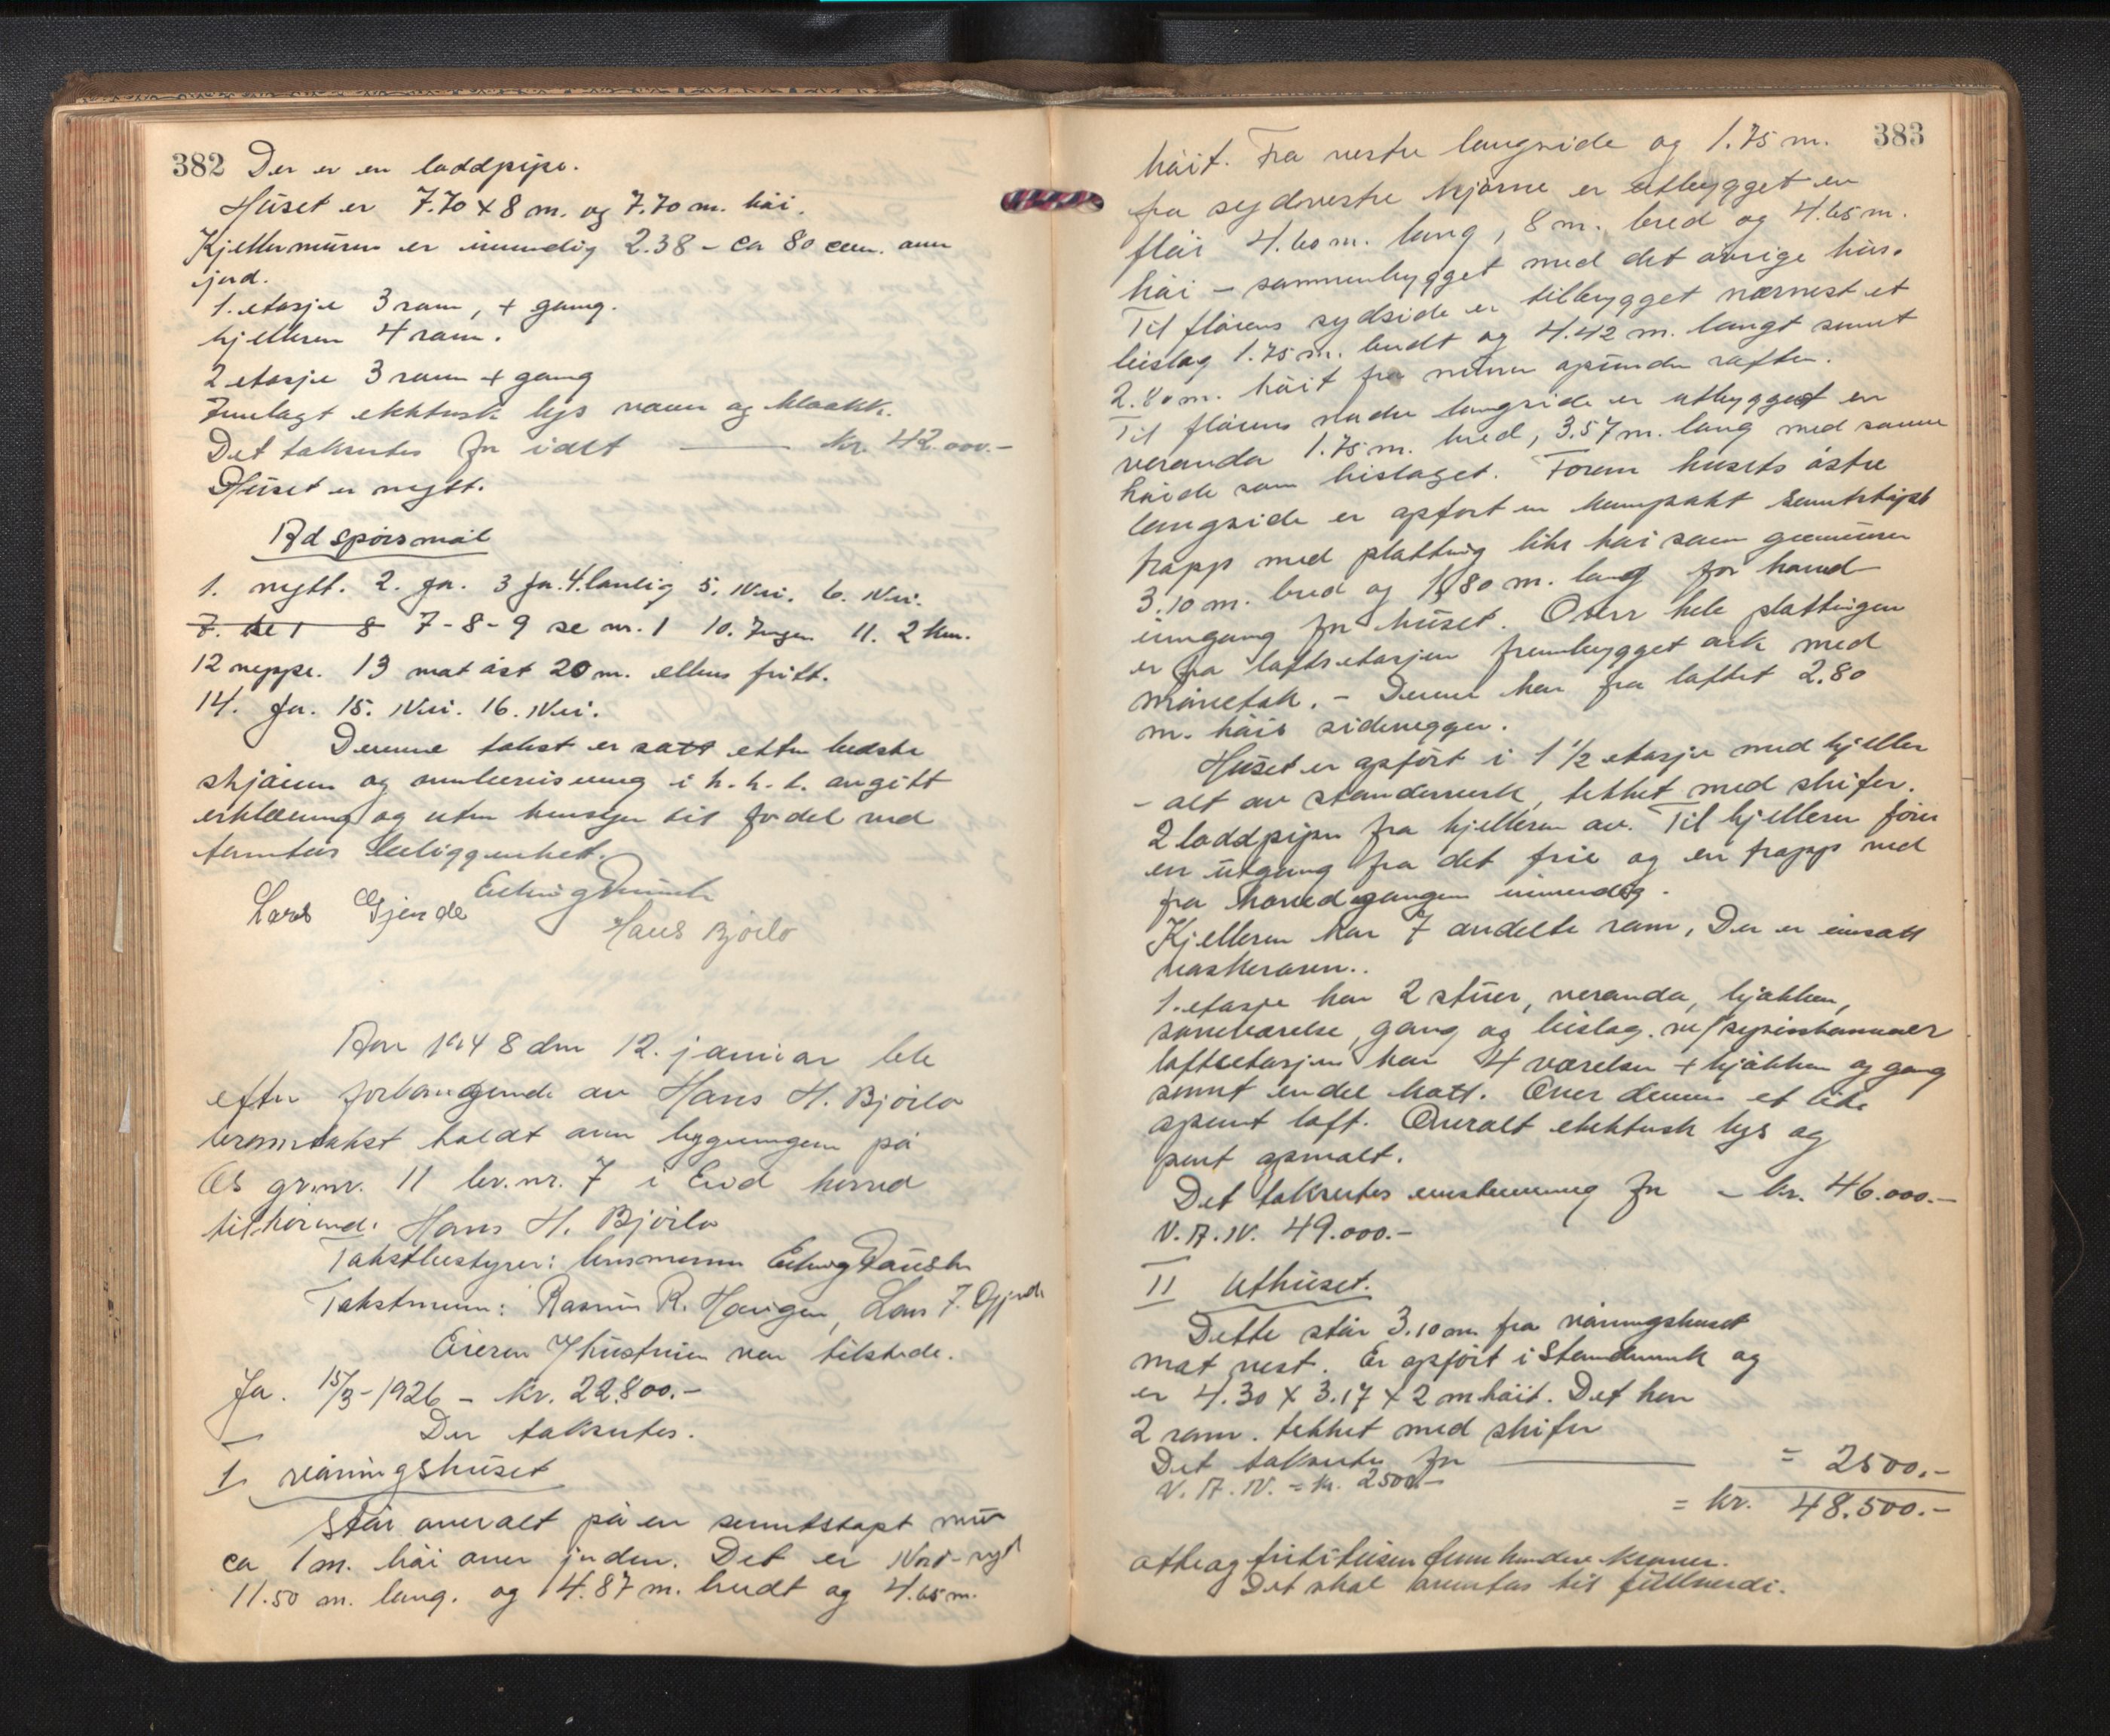 382 Der er en loddpipe.
Huset er 7.70 x 8 m. og 7.70 m. høi.
Kjellermuren er innvendig 2.38 - ca 80 cm. over
jord.
1. etasje 3 rom, + gang.
kjelleren 4 rom.
2 etasje 3 rom + gang
Innlagt elektrisk lys vann og kloakk.
Det takseres for idet — kr. 42.000.-
Huset er nytt.
Ad spørsmål
1. nytt. 2. Ja. 3 Ja. 4. lovlig 5. Nei. 6. Nei.
7. se 1 8 7-8-9 se nr. 1 10. Ingen 11. 2 km.
12 neppe. 13 mot øst 20 m. ellers fritt.
14. Ja. 15. Nei. 16. Nei.
Denne takst er satt efter bedste
skjønn og overbevisning i h. h. t. avgitt
erklæring og uten hensyn til fordel ved
tomtens beliggenhet.
Lars Gjerde
Hans Bjørlo
Aar 1948 den 12. januar ble
efter forlangende av Hans H. Bjørlo
branntakst holdt over bygningene på
Os gr.nr. 11 br.nr. 7 i Eid herred
tilhørende Hans H. Bjørlo
Takstbestyrer: lensmann
Takstmenn: Rasmus R. Haugen, Lars J. Gjerde
Eieren v/hustruen var tilstede.
Ja. 15/3-1926 - kr. 22.800.-
Der takseres.
I våningshuset
Står overalt på en sementstøpt mur
ca 1 m. høi over jorden. Det er Nord-syd
11.50 m. lang. og 4.87 m. bredt og 4.65 m.
383
høit. Fra vestre langside og 1.75 m.
fra sydvestre hjørne er utbygget en
fløi 4.60 m. lang, 8 m. bred og 4.65 m.
høi - sammenbygget med det øvrige hus.
Til fløiens sydside er tilbygget nærmest et
bislag 1.75 m. bredt og 4.42 m. langt samt
2.80 m. høit fra muren opunder raften.
Til fløiens nordre langside er utbygget en
veranda 1.75 m. bred, 3.57 m. lang med samme
høide som bislaget. Foran husets østre
langside er opført en kompakt sementstøpt
trapp med platting like høi som grunnmuren
3.10 m. bred og 1.80 m. lang for hoved-
inngang for huset. Over hele plattingen
er fra loftsetasjen frembygget ark med
månetak. - Denne har fra loftet 2.80
m. høie sidevegger.
Huset er opført i 1 1/2 etasje med kjeller
- alt av standerverk, tekket med skifer.
2 loddpiper fra kjelleren av. Til kjelleren fører
en utgang fra det frie og en trapp ned
fra hovedgangen innvendig.
Kjelleren har 7 avdelte rom, Der er innsatt
vaskerovn..
1. etasje har 2 stuer, veranda, kjøkken,
soveværelse, gang og bislag. m/ spiskammer
loftsetasjen har 4 værelser + kjøkken og gang
samt endel kott. Over denne et lite
åpent loft. Overalt elektrisk lys og
pent opmalt.
Det takseres enstemmig for - kr. 46.000.-
V. A. N. 49.000.-
II Uthuset.
Dette står 3.10 m fra våningshuset
mot vest. Er opført i Standerverk og
er 4.30 x 3.17 x 2 m høit. Det har
2 rom. tekket med skifer
Det takseres for — = 2500.-
V. A. N. = kr. 2500.-
= kr. 48.500.-
otteogførtitusen fem hundre kroner.
Det skal ansettes til fullverdi.